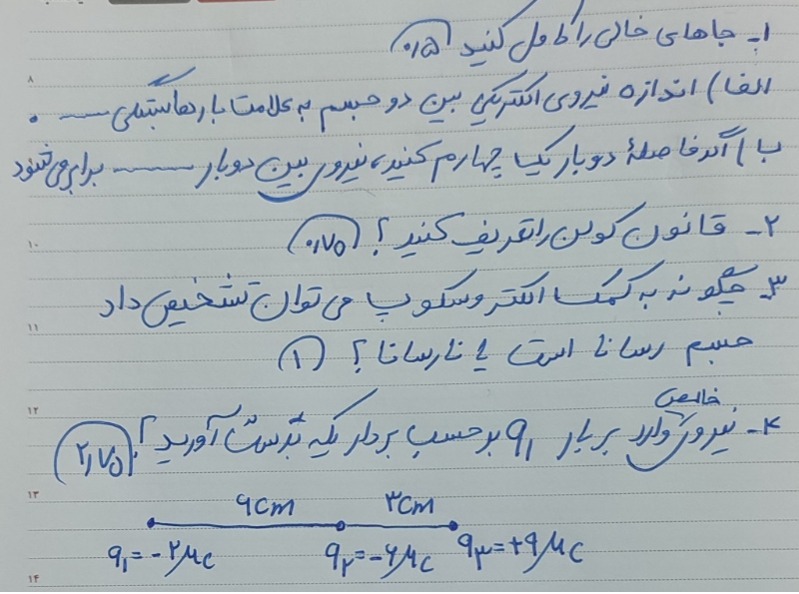 ۱- جاهای خالی را کامل کنید (۰/۵)
۸
الف) اندازه نیروی الکتریکی بین دو جسم به علامت بارها بستگی ــــ .
ب) اگر فاصلهٔ دو بار یک چهارم کنید، نیروی بین دو بار ــــ برابر می‌شود
۲- قانون کولن را تعریف کنید؟ (۰/۷۵)
۱۰
۳- چگونه به کمک الکتروسکوپ می‌توان تشخیص داد
۱۱
جسم رسانا است یا نارسانا؟ (۱)
۱۲
خالص
۴- نیروی وارد بر بار q₁ برحسب بردار یکه بدست آورید؟ (۲/۷۵)
۱۳
۳cm
q₁=-۲μC q₂=-۶μC q₃=+۹μC
۱۴